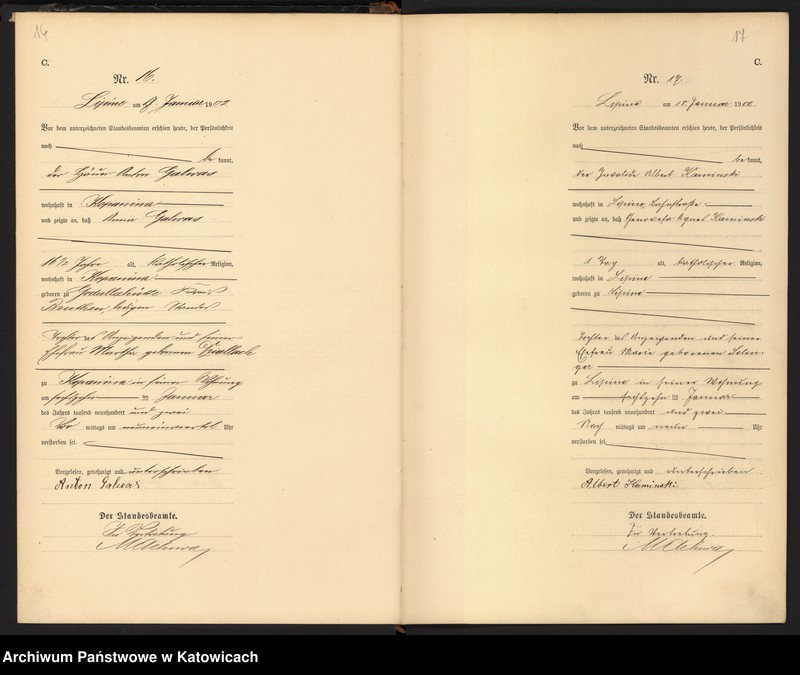 14
C.
Nr. 16.
Lipine am 9 Januar 1902
Vor dem unterzeichneten Standesbeamten erschien heute, der Persönlichkeit
nach
be kannt,
der Häuer Anton Galwas
wohnhaft in Kopanina
und zeigte an, daß Anna Galwas
16 1/2 Jahre alt, katholischer Religion,
wohnhaft in Kopanina
geboren zu Godullahütte Kreis
Beuthen, ledigen Standes
Tochter des Anzeigenden und seiner
Ehefrau Martha geborenen
zu Kopanina in seiner Wohnung
am ten Januar
des Jahres tausend neunhundert und zwei
Vor mittags um Uhr
verstorben sei.
Vorgelesen, genehmigt und unterschrieben
Anton Galwas
Der Standesbeamte.
In Vertretung
17
C.
Nr. 17.
Lipine am Januar 1902
Vor dem unterzeichneten Standesbeamten erschien heute, der Persönlichkeit
nach
be kannt,
der Invalide Albert Kaminski
wohnhaft in Lipine, Bahnstraße
und zeigte an, daß Genovefa Agnes Kaminski
1 Tag alt, katholischer Religion,
wohnhaft in Lipine
geboren zu Lipine
Tochter des Anzeigenden und seiner
Ehefrau Marie geborenen
zu Lipine in seiner Wohnung
am ten Januar
des Jahres tausend neunhundert und zwei
Nach mittags um neun Uhr
verstorben sei.
Vorgelesen, genehmigt und unterschrieben
Albert Kaminski
Der Standesbeamte.
In Vertretung.
Archiwum Państwowe w Katowicach